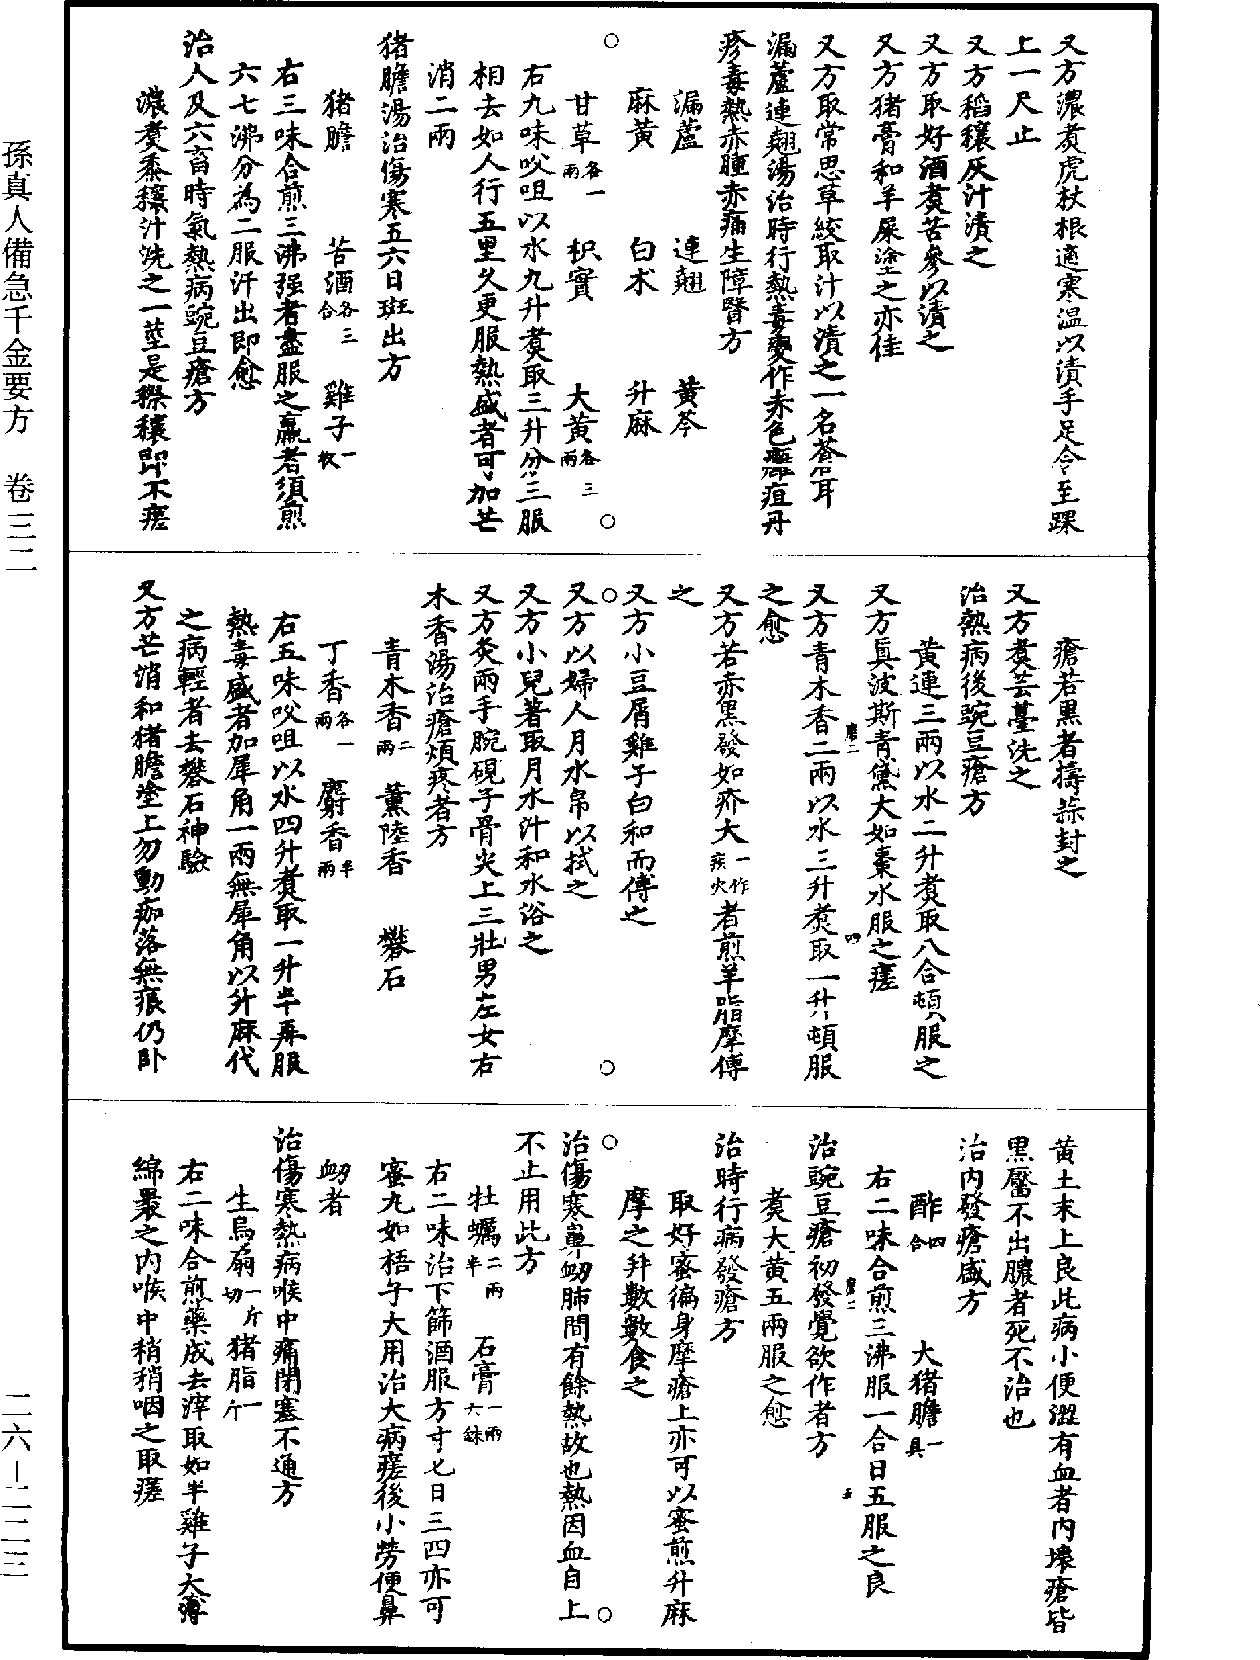 又方濃煮虎杖根適寒温以漬手足令至踝
上一尺止
又方稻穰灰汁漬之
又方取好酒煮苦參以漬之
又方猪膏和羊屎塗之亦佳
又方取常思草絞取汁以漬之一名蒼耳
漏蘆連翹湯治時行熱毒變作赤色癰疽丹
疹毒熱赤腫赤痛生障瞖方
漏蘆 連翹 黄芩
麻黄 白术 升麻
甘草各一兩 枳實 大黄各三兩
右九味㕮咀以水九升煮取三升分三服
相去如人行五里久更服熱盛者可加芒
消二兩
猪膽湯治傷寒五六日斑出方
猪膽 苦酒各三合 雞子一枚
右三味合煎三沸强者盡服之羸者須煎
六七沸分為二服汗出即愈
治人及六畜時氣熱病豌豆瘡方
濃煮黍穰汁洗之一莖是穄穰即不瘥
瘡若黒者擣蒜封之
又方煮芸薹洗之
治熱病後豌豆瘡方
黄連三兩以水二升煮取八合頓服之
又方真波斯青黛大如棗水服之瘥
又方青木香二兩以水三升煮取一升頓服
之愈
又方若赤黒發如疥大一作疾火者煎羊脂摩傅
之
又方小豆屑雞子白和而傅之
又方以婦人月水帛以拭之
又方小兒著取月水汁和水浴之
又方灸兩手腕硯子骨尖上三壯男左女右
木香湯治瘡煩疼者方
青木香二兩 薰陸香 礬石
丁香各一兩 麝香半兩
右五味㕮咀以水四升煮取一升半再服
熱毒盛者加犀角一兩無犀角以升麻代
之病輕者去礬石神驗
又方芒消和猪膽塗上勿動痂落無痕仍卧
黄土末上良此病小便澀有血者内壞瘡皆
黒靨不出膿者死不治也
治内發瘡盛方
酢四合 大猪膽一具
右二味合煎三沸服一合日五服之良
治豌豆瘡初發覺欲作者方
煮大黄五兩服之愈
治時行病發瘡方
取好蜜徧身摩瘡上亦可以蜜煎升麻
摩之并數數食之
治傷寒鼻衂肺間有餘熱故也熱因血自上
不止用此方
牡蠣二兩半 石膏一兩六銖
右二味治下篩酒服方寸匕日三四亦可
蜜丸如梧子大用治大病瘥後小勞便鼻
衂者
治傷寒熱病喉中痛閉塞不通方
生烏扇一斤切 猪脂一斤
右二味合煎藥成去滓取如半雞子大薄
綿裹之内喉中稍稍咽之取瘥
孫真人備急千金要方 卷三二
二六-二二三